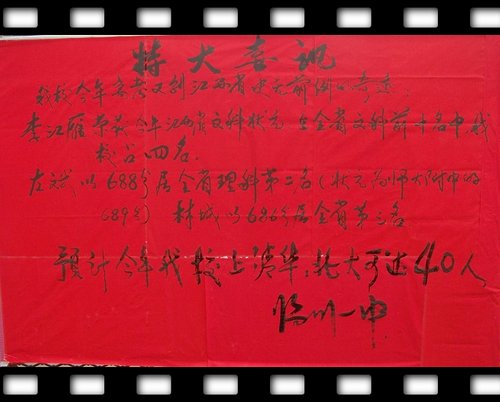 特大喜讯
我校今年高考又创江西省史无前例的奇迹：
李江雁荣获今年江西省文科状元，且全省文科前十名中我
校占四名.
左斌以688分居全省理科第二名（状元为师大附中的
689分） 林城以686分居全省第三名
预计今年我校上清华、北大可达40人
临川一中